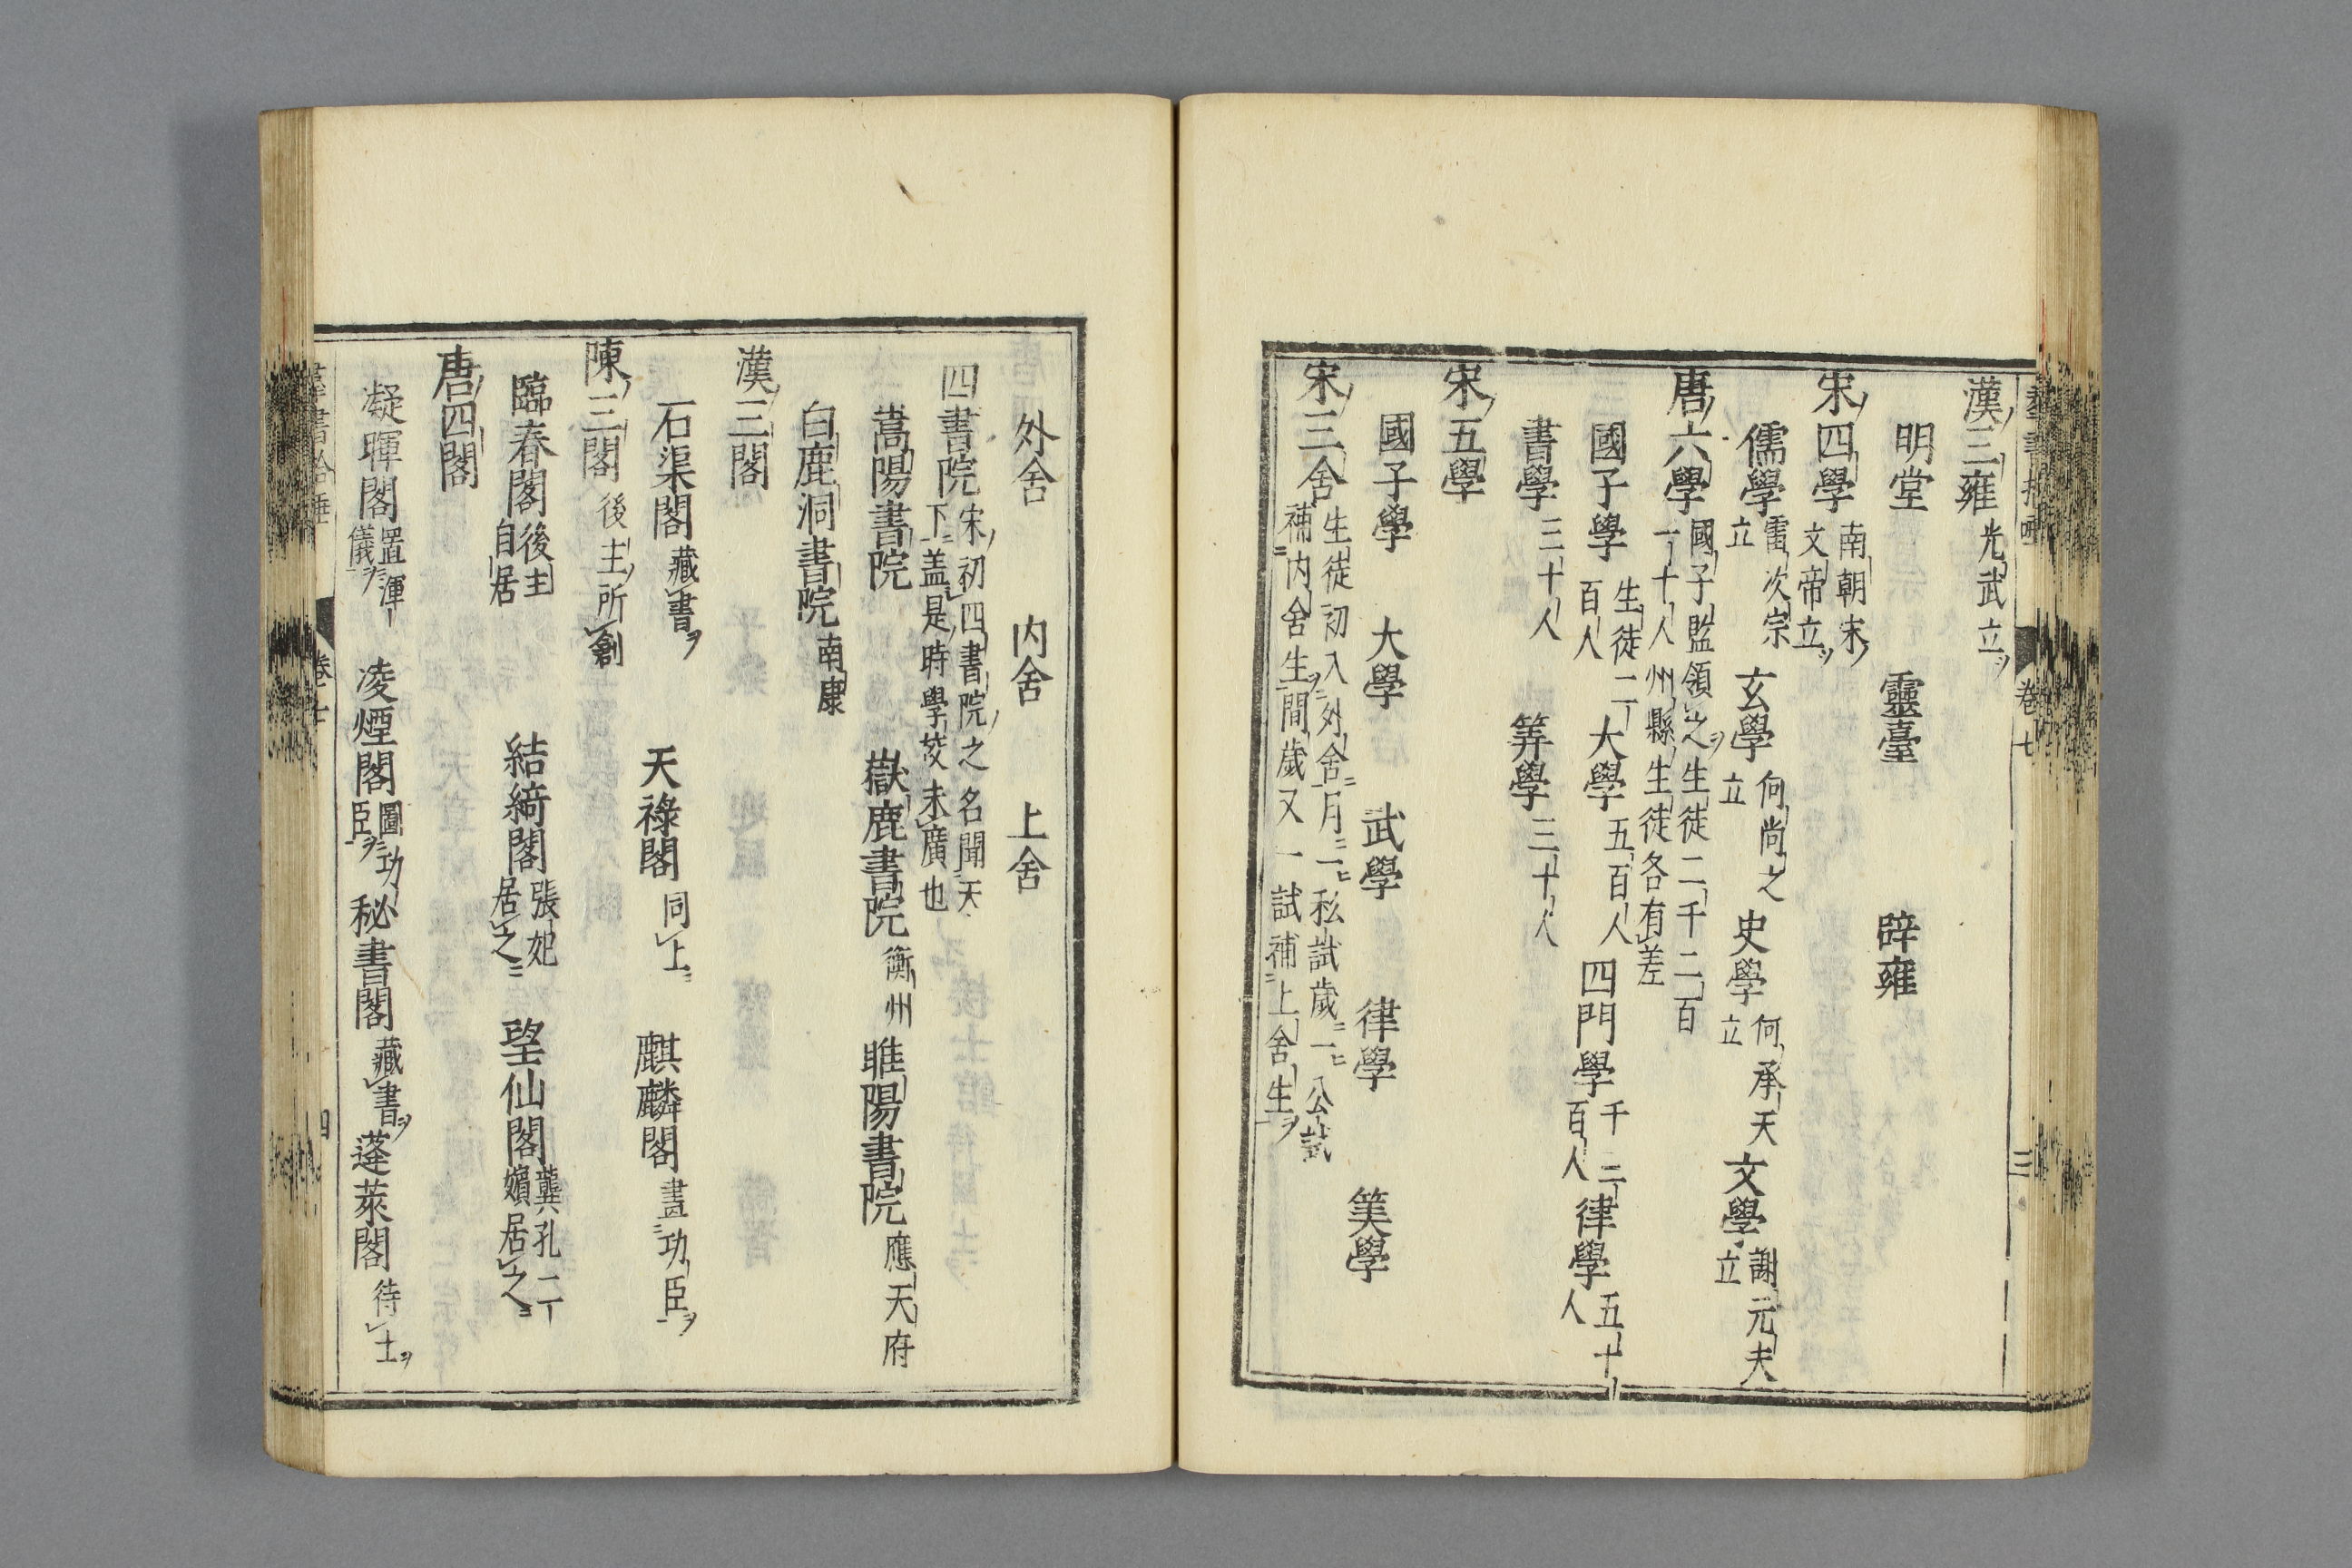 漢三雍光武立
明堂 靈臺 辟雍
宋四學南朝宋文帝立
儒學雷次宗立 玄學何尚之立 史學何承天立 文學謝元夫立
唐六學國子監領之生徒二千二百一十人州縣生徒各有差
國子學生徒二百人 大學五百人 四門學千三百人 律學五十人
書學三十人 筭學三十人
宋五學
國子學 大學 武學 律學 筭學
宋三舍生徒初入外舍月一私試歲一公試補内舍生間歲又一試補上舍生
卷七
三
外舍 内舍 上舍
四書院宋初四書院之名聞天下盖是時學挍未廣也
嵩陽書院 嶽鹿書院衡州 睢陽書院應天府
白鹿洞書院南康
漢三閣
石渠閣藏書 天祿閣同上 麒麟閣畫功臣
陳三閣後主所創
臨春閣後主自居 結綺閣張妃居之 望仙閣龔孔二嬪居之
唐四閣
凝暉閣置渾儀 凌煙閣圖功臣 秘書閣藏書 蓬萊閣待士
卷七
四